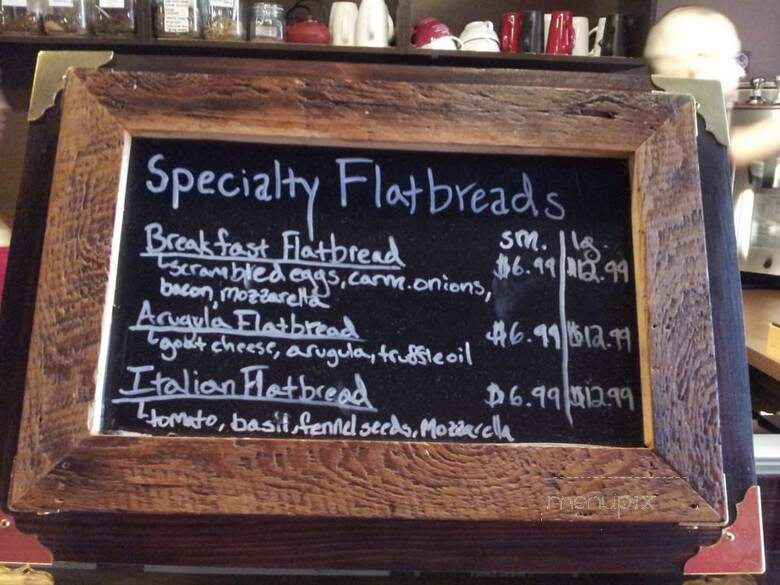 Specialty Flatbreads
sm. | lg.
Breakfast Flatbread $6.99 | $12.99
scrambled eggs, carm. onions,
bacon, mozzarella
Arugula Flatbread $6.99 | $12.99
goat cheese, arugula, truffle oil
Italian Flatbread $6.99 | $12.99
tomato, basil, fennel seeds, Mozzarella
menupix